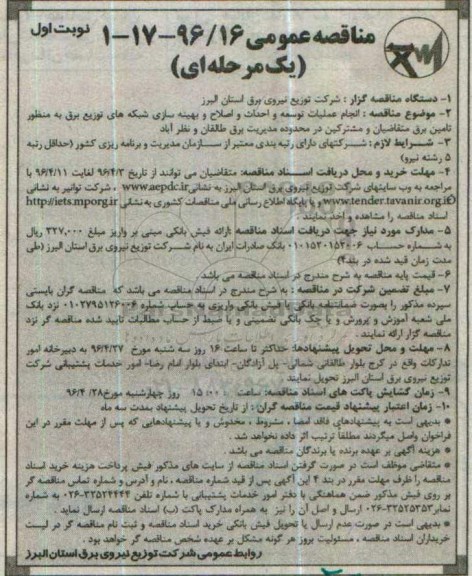 نوبت اول
مناقصه عمومی ۹۶/۱۶-۱۷-۱
(یک مرحله‌ای)
۱- دستگاه مناقصه گزار : شرکت توزیع نیروی برق استان البرز
۲- موضوع مناقصه : انجام عملیات توسعه و احداث و اصلاح و بهینه سازی شبکه های توزیع برق به منظور
تامین برق متقاضیان و مشترکین در محدوده مدیریت برق طالقان و نظر آباد
۳- شرایط لازم : شرکتهای دارای رتبه بندی معتبر از سازمان مدیریت و برنامه ریزی کشور (حداقل رتبه
۵ رشته نیرو)
۴- مهلت خرید و محل دریافت اسناد مناقصه: متقاضیان می توانند از تاریخ ۹۶/۴/۳ لغایت ۹۶/۴/۱۱ با
مراجعه به وب سایتهای شرکت توزیع نیروی برق استان البرز به نشانی www.aepdc.ir ، شرکت توانیر به نشانی
www.tender.tavanir.org.ir و یا پایگاه اطلاع رسانی ملی مناقصات کشوری به نشانی http://iets.mporg.ir
اسناد مناقصه را مشاهده و اخذ نمایند .
۵- مدارک مورد نیاز جهت دریافت اسناد مناقصه :ارائه فیش بانکی مبنی بر واریز مبلغ ۳۲۷,۰۰۰ ریال
به شماره حساب ۰۱۰۱۵۳۰۱۵۲۰۰۶ بانک صادرات ایران به نام شرکت توزیع نیروی برق استان البرز (طی
مدت زمان قید شده در بند۴)
۶- قیمت پایه مناقصه به شرح مندرج در اسناد مناقصه می باشد
۷- مبلغ تضمین شرکت در مناقصه : به شرح مندرج در اسناد مناقصه می باشد که مناقصه گران بایستی
سپرده مذکور را بصورت ضمانتنامه بانکی یا فیش بانکی واریزی به حساب شماره ۰۱۰۲۷۹۵۱۲۶۰۰۶ نزد بانک
ملی شعبه آموزش و پرورش و یا چک بانکی تضمینی و یا ضبط از حساب مطالبات تایید شده مناقصه گر نزد
مناقصه گزار ارائه نمایند .
۸- مهلت و محل تحویل پیشنهادها: حداکثر تا ساعت ۱۶ روز سه شنبه مورخ ۹۶/۴/۲۷ به دبیرخانه امور
تدارکات واقع در کرج بلوار طالقانی شمالی- پل آزادگان- ابتدای بلوار امام رضا- امور خدمات پشتیبانی شرکت
توزیع نیروی برق استان البرز تحویل نمایند .
۹- زمان گشایش پاکت های اسناد مناقصه: ساعت ۱۵:۰۰ روز چهارشنبه مورخ ۹۶/۴/۲۸
۱۰- زمان اعتبار پیشنهاد قیمت مناقصه گران : از تاریخ تحویل پیشنهاد بمدت سه ماه
* بدیهی است به پیشنهادهای فاقد امضا ، مشروط ، مخدوش و یا پیشنهادهایی که پس از مهلت مقرر در این
فراخوان واصل میگردند مطلقا ترتیب اثر داده نخواهد شد .
* هزینه آگهی بر عهده برنده یا برندگان مناقصه می باشد .
* متقاضی موظف است در صورت گرفتن اسناد مناقصه از سایت های مذکور فیش پرداخت هزینه خرید اسناد
مناقصه را ظرف مهلت مقرر در بند ۴ این آگهی پس از قید شماره مناقصه ، نام و آدرس و شماره تماس مناقصه گر
بر روی فیش مذکور ضمن هماهنگی با دفتر امور خدمات پشتیبانی با شماره تلفن ۳۲۵۲۴۴۴۴-۰۲۶ به شماره
نمابر ۳۲۵۲۵۳۵۳-۰۲۶ ارسال و اصل آن را نیز به همراه مدارک پاکت (ب) اسناد مناقصه ارسال نماید .
* بدیهی است در صورت عدم ارسال یا تحویل فیش بانکی خرید اسناد مناقصه و ثبت نام مناقصه گر در لیست
خریداران اسناد مناقصه ، مسئولیت بروز هر گونه مشکل بر عهده شخص مناقصه گر خواهد بود .
روابط عمومی شرکت توزیع نیروی برق استان البرز